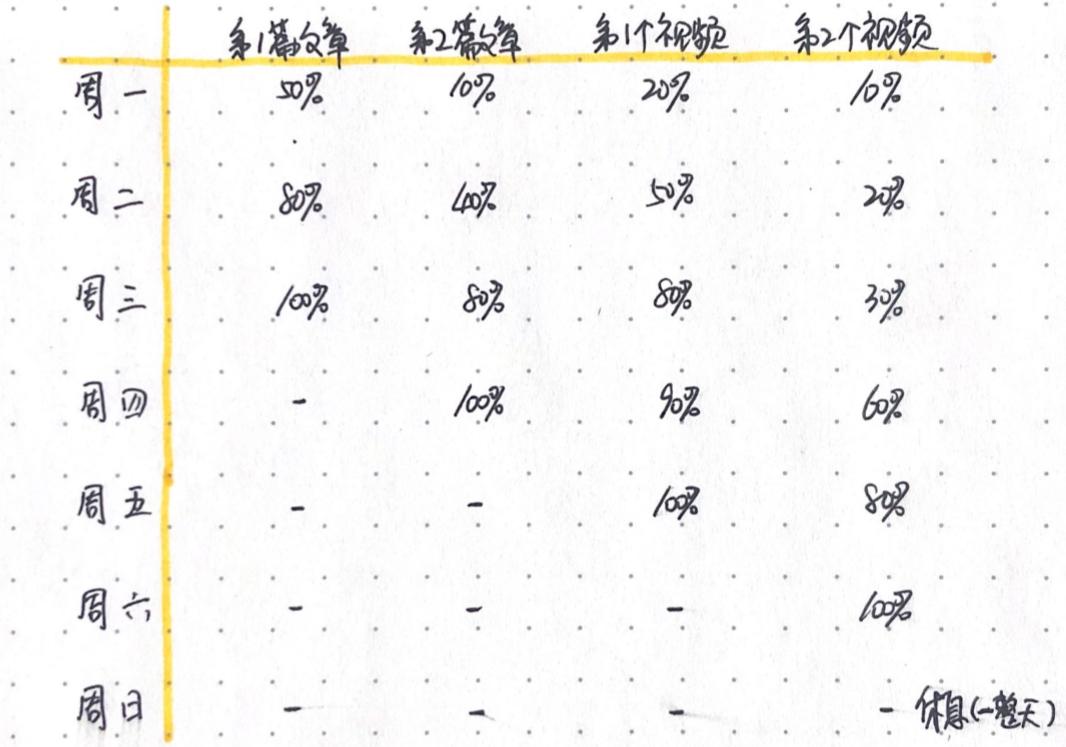 第1篇文章 第2篇文章 第1个视频 第2个视频
周一 50% 10% 20% 10%
周二 80% 40% 50% 20%
周三 100% 80% 80% 30%
周四 - 100% 90% 60%
周五 - - 100% 80%
周六 - - - 100%
周日 - - - - 休息(一整天)